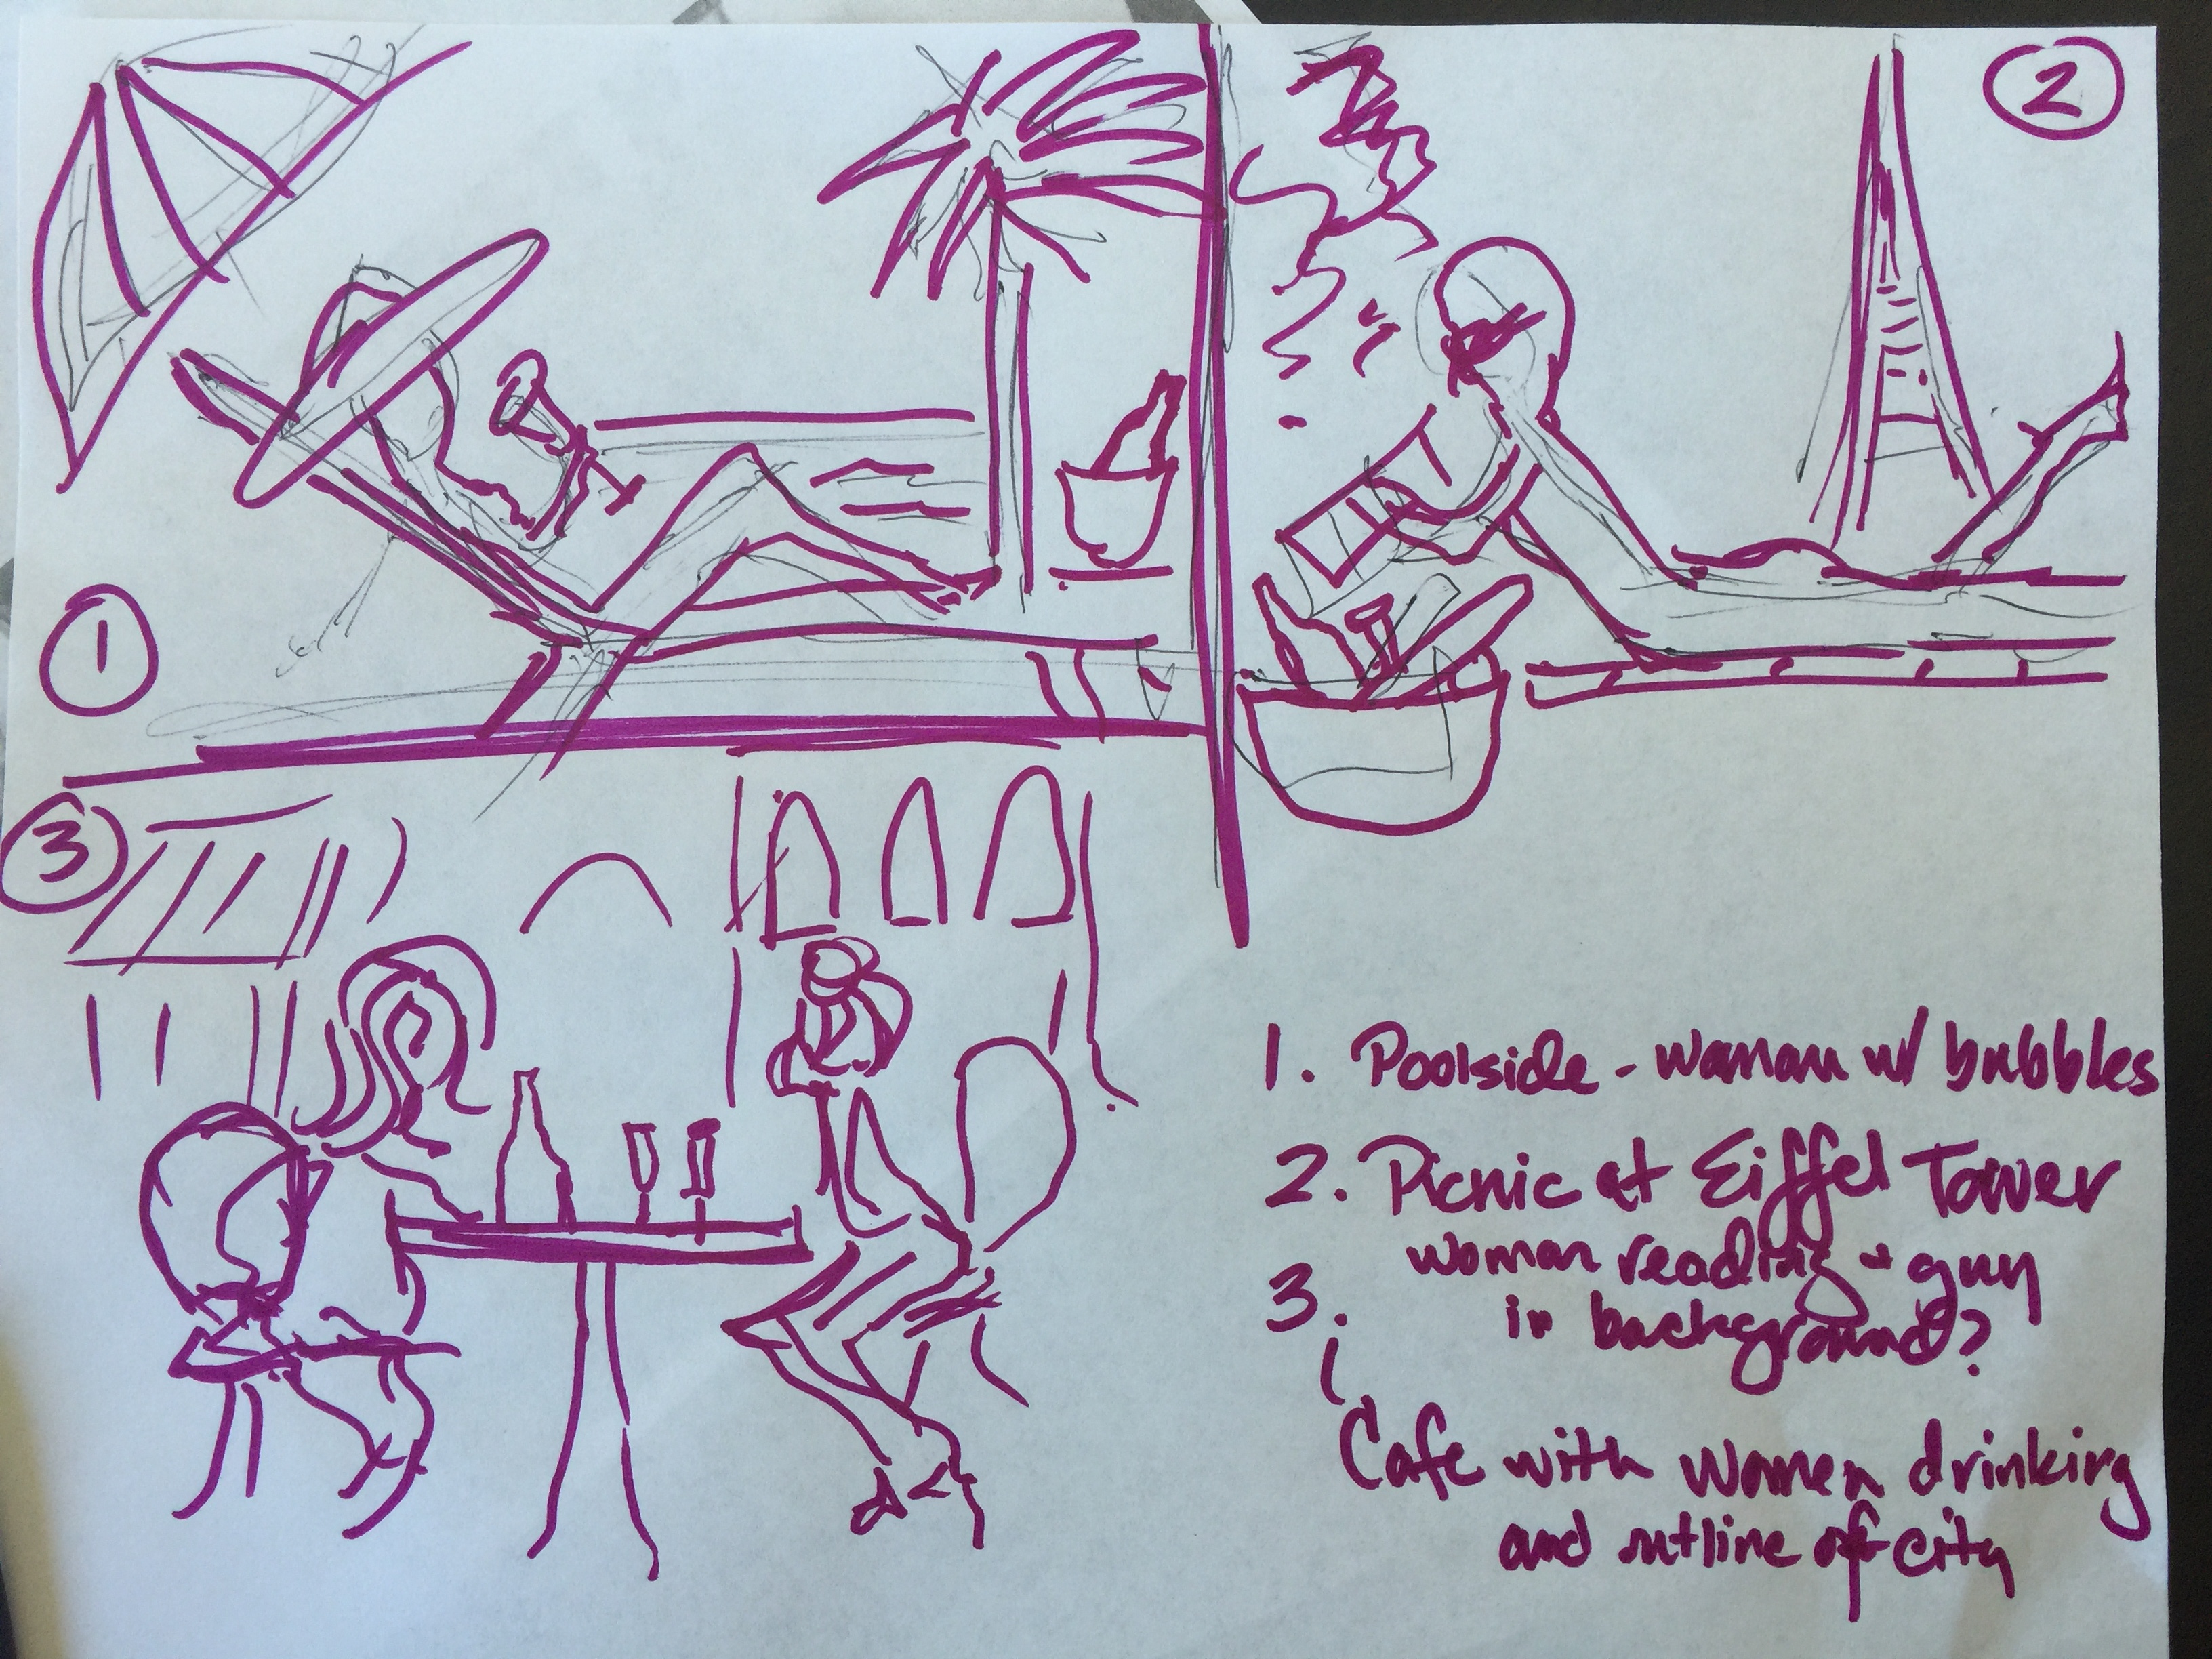 2
1
3
1. Poolside - woman w/ bubbles
2. Picnic at Eiffel Tower
woman reading + guy
3. in background?
Cafe with women drinking
and outline of city